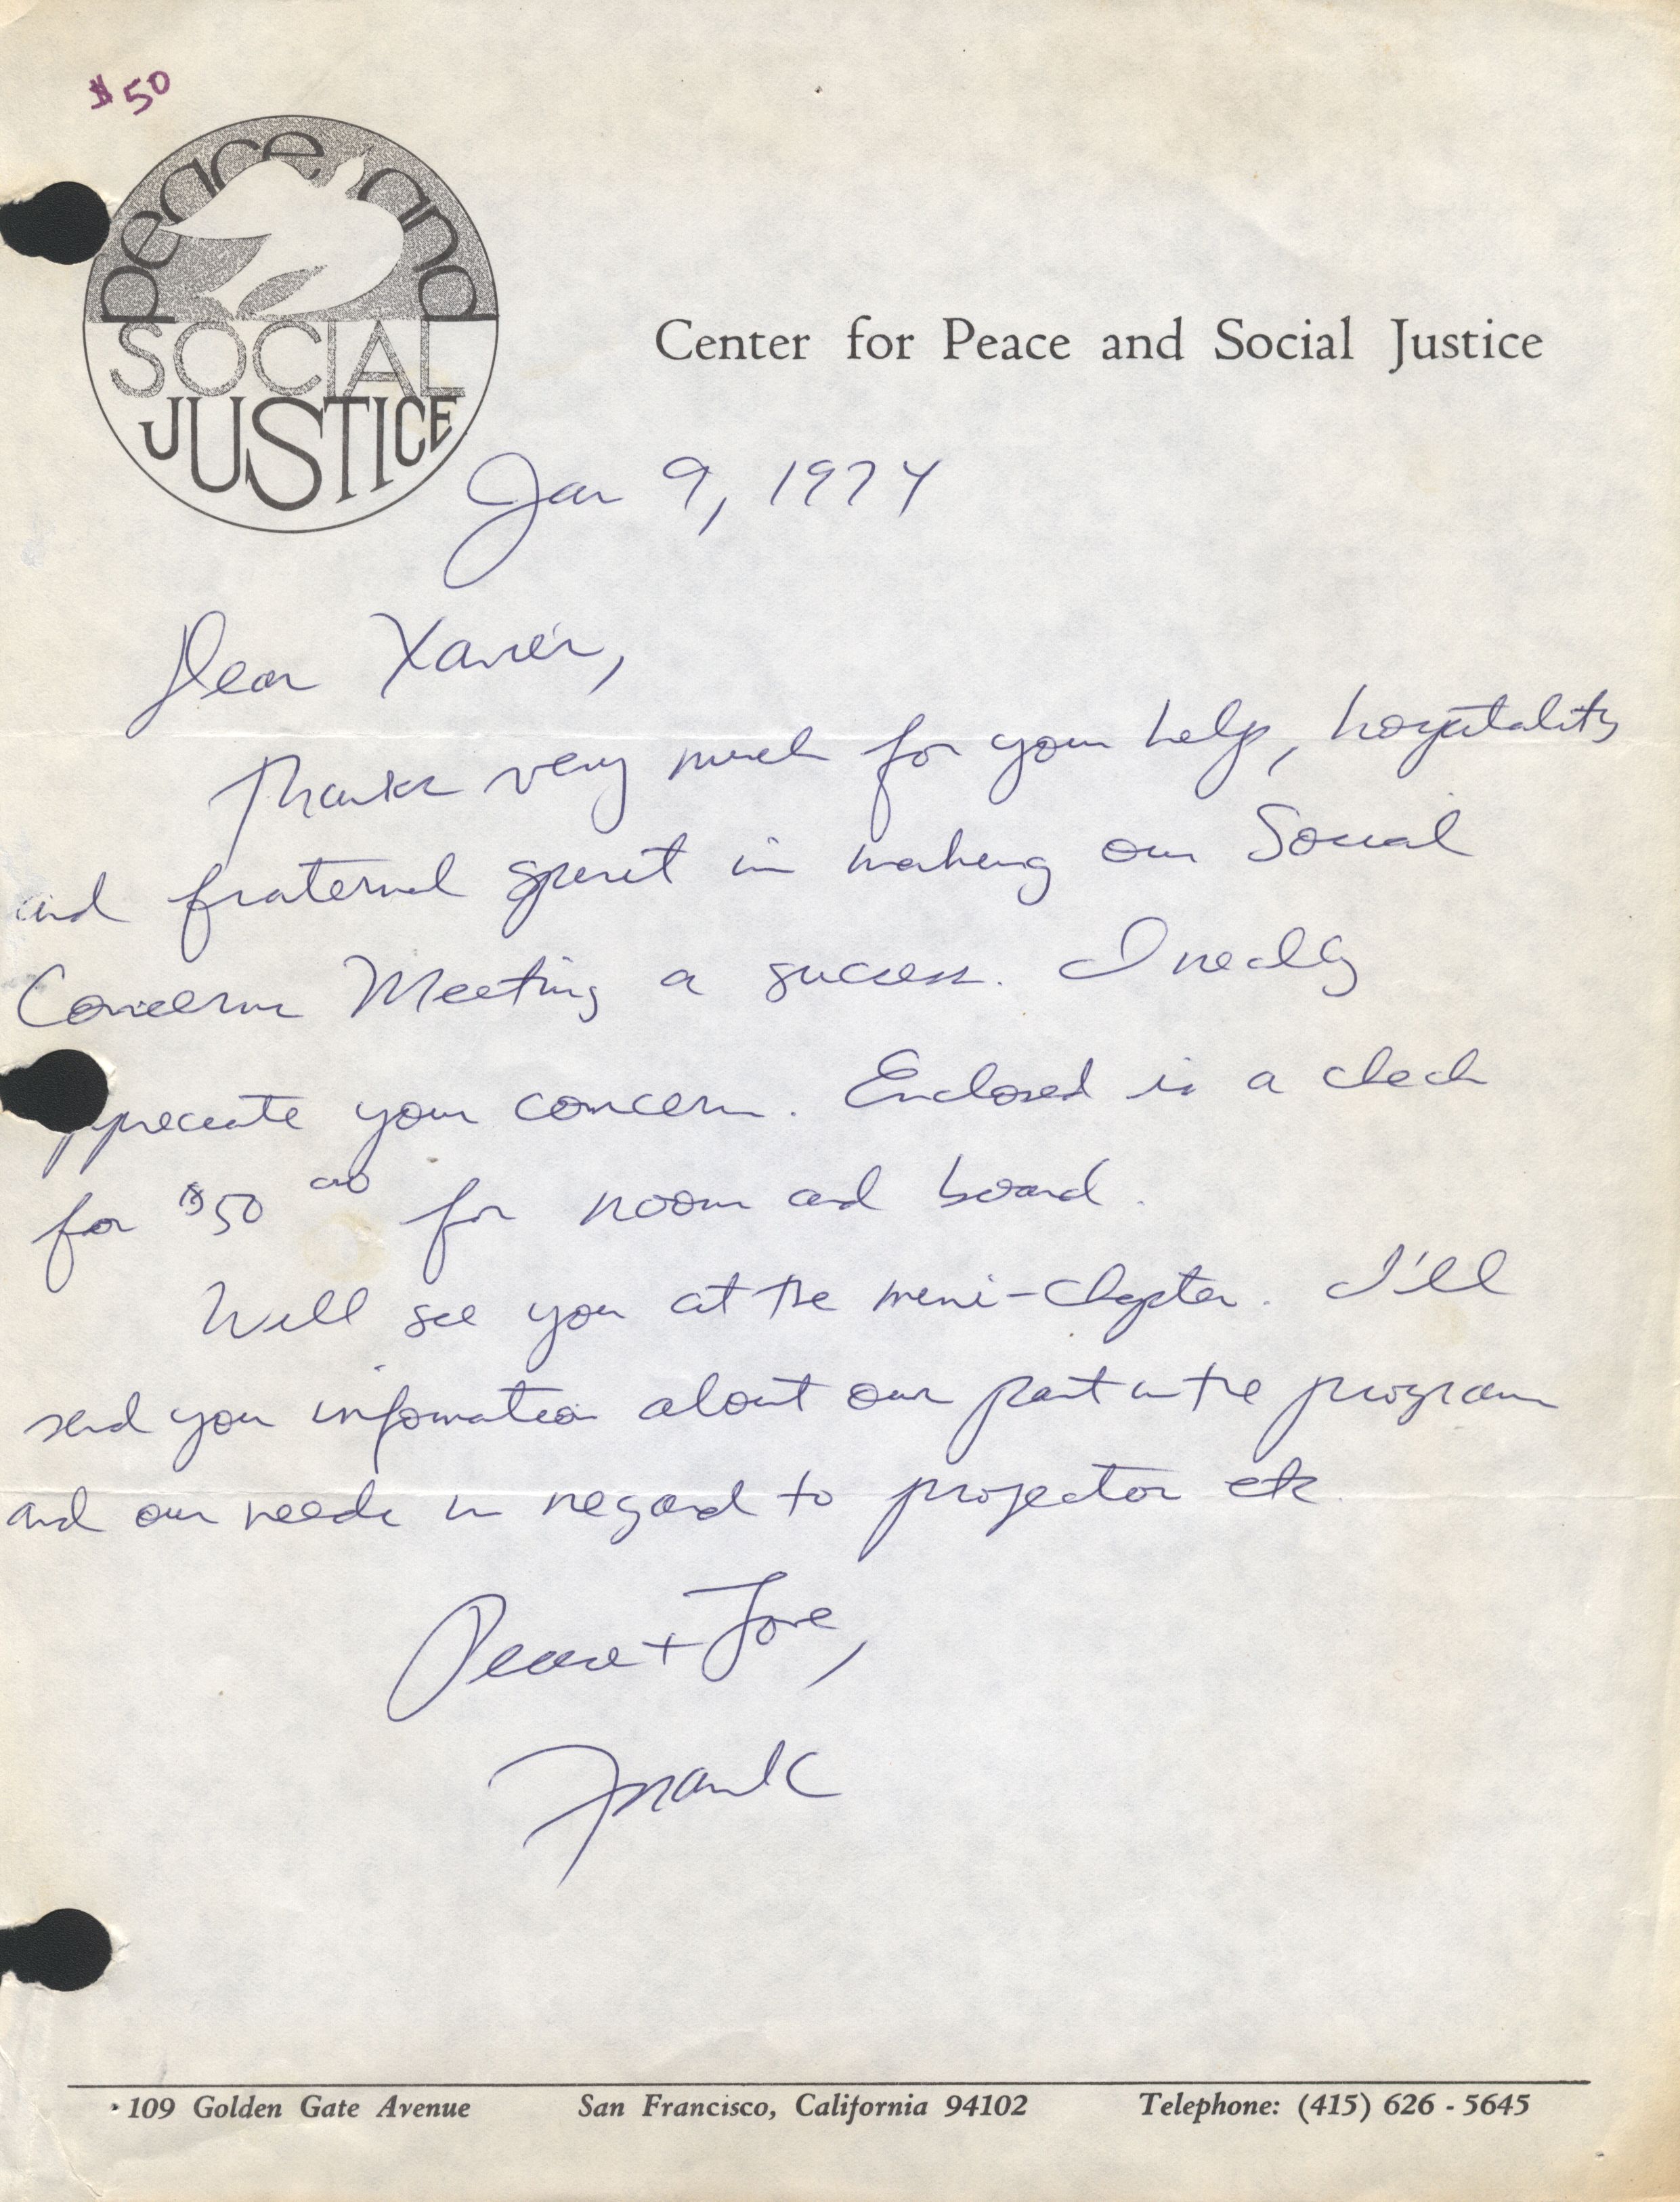 $50
peace and
SOCIAL
JUSTICE
Center for Peace and Social Justice
Jan 9, 1974
Dear Xavier,
Thanks very much for your help, hospitality
and fraternal spirit in making our Social
Concerns Meeting a success. I really
appreciate your concern. Enclosed is a check
for $50 00 for room and board.
Will see you at the mini-chapter. I'll
send you information about our part in the program
and our needs in regard to projector etc.
Peace + Love,
Frank
109 Golden Gate Avenue San Francisco, California 94102 Telephone: (415) 626-5645